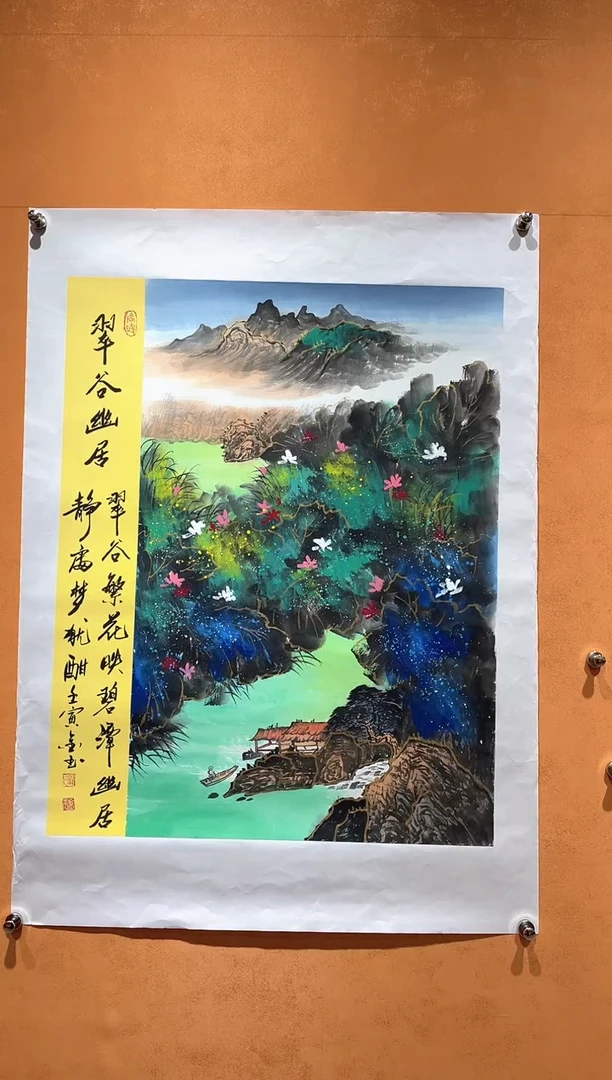 翠谷幽居
翠谷繁花映碧潭幽居
静處梦犹酣壬寅